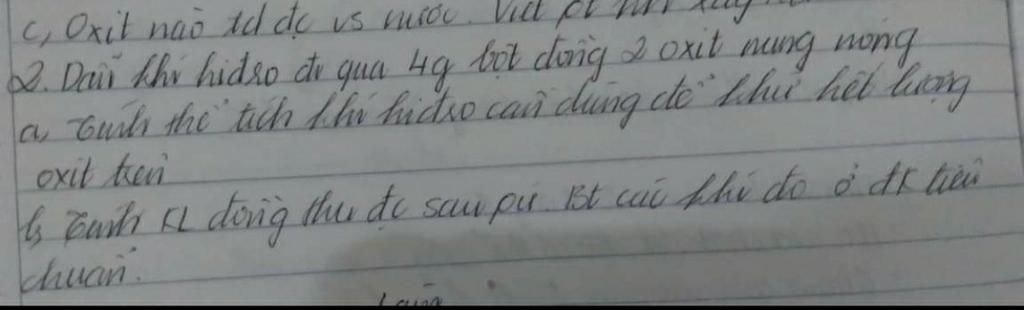 c, Oxit nào td đc vs nước. Viết pt
2. Dẫn khí hidro đi qua 4g bột đồng 2 oxit nung nóng
a, Tính thể tích khí hidro cần dùng để khử hết lượng
oxit trên
b, Tính KL đồng thu đc sau pứ. Bt các khí đo ở đk tiêu
chuẩn.